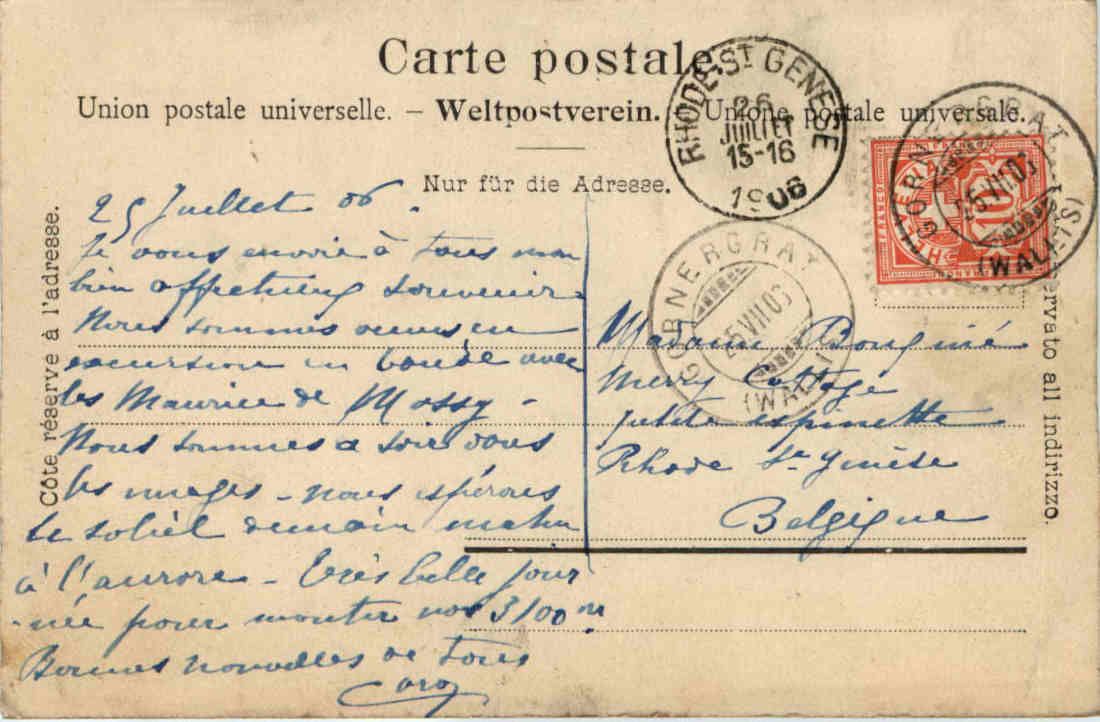 Carte postale.
Union postale universelle. – Weltpostverein. – Unione postale universale.
Nur für die Adresse.
Côte réservé à l'adresse.
Lato riservato all indirizzo.
RHODE-ST GENESE
26
JUILLET
15-16
1906
GORNERGRAT
25 VII 06
(WALLIS)
GORNERGRAT
25 VII 06
(WALLIS)
FRANCO
10
25 Juillet 06.
Je vous envoie à tous mon
bien affectueux souvenir.
Nous sommes venus en
excursion en bande avec
les Maurice de Mossy –
Nous sommes ce soir dans
les nuages – nous espérons
le soleil demain matin
à l'aurore – Très belle jour
-née pour monter nos 3100 m
Bonnes nouvelles de tous
Madame
Merry Cottage
petite espinette
Rhode St Genèse
Belgique